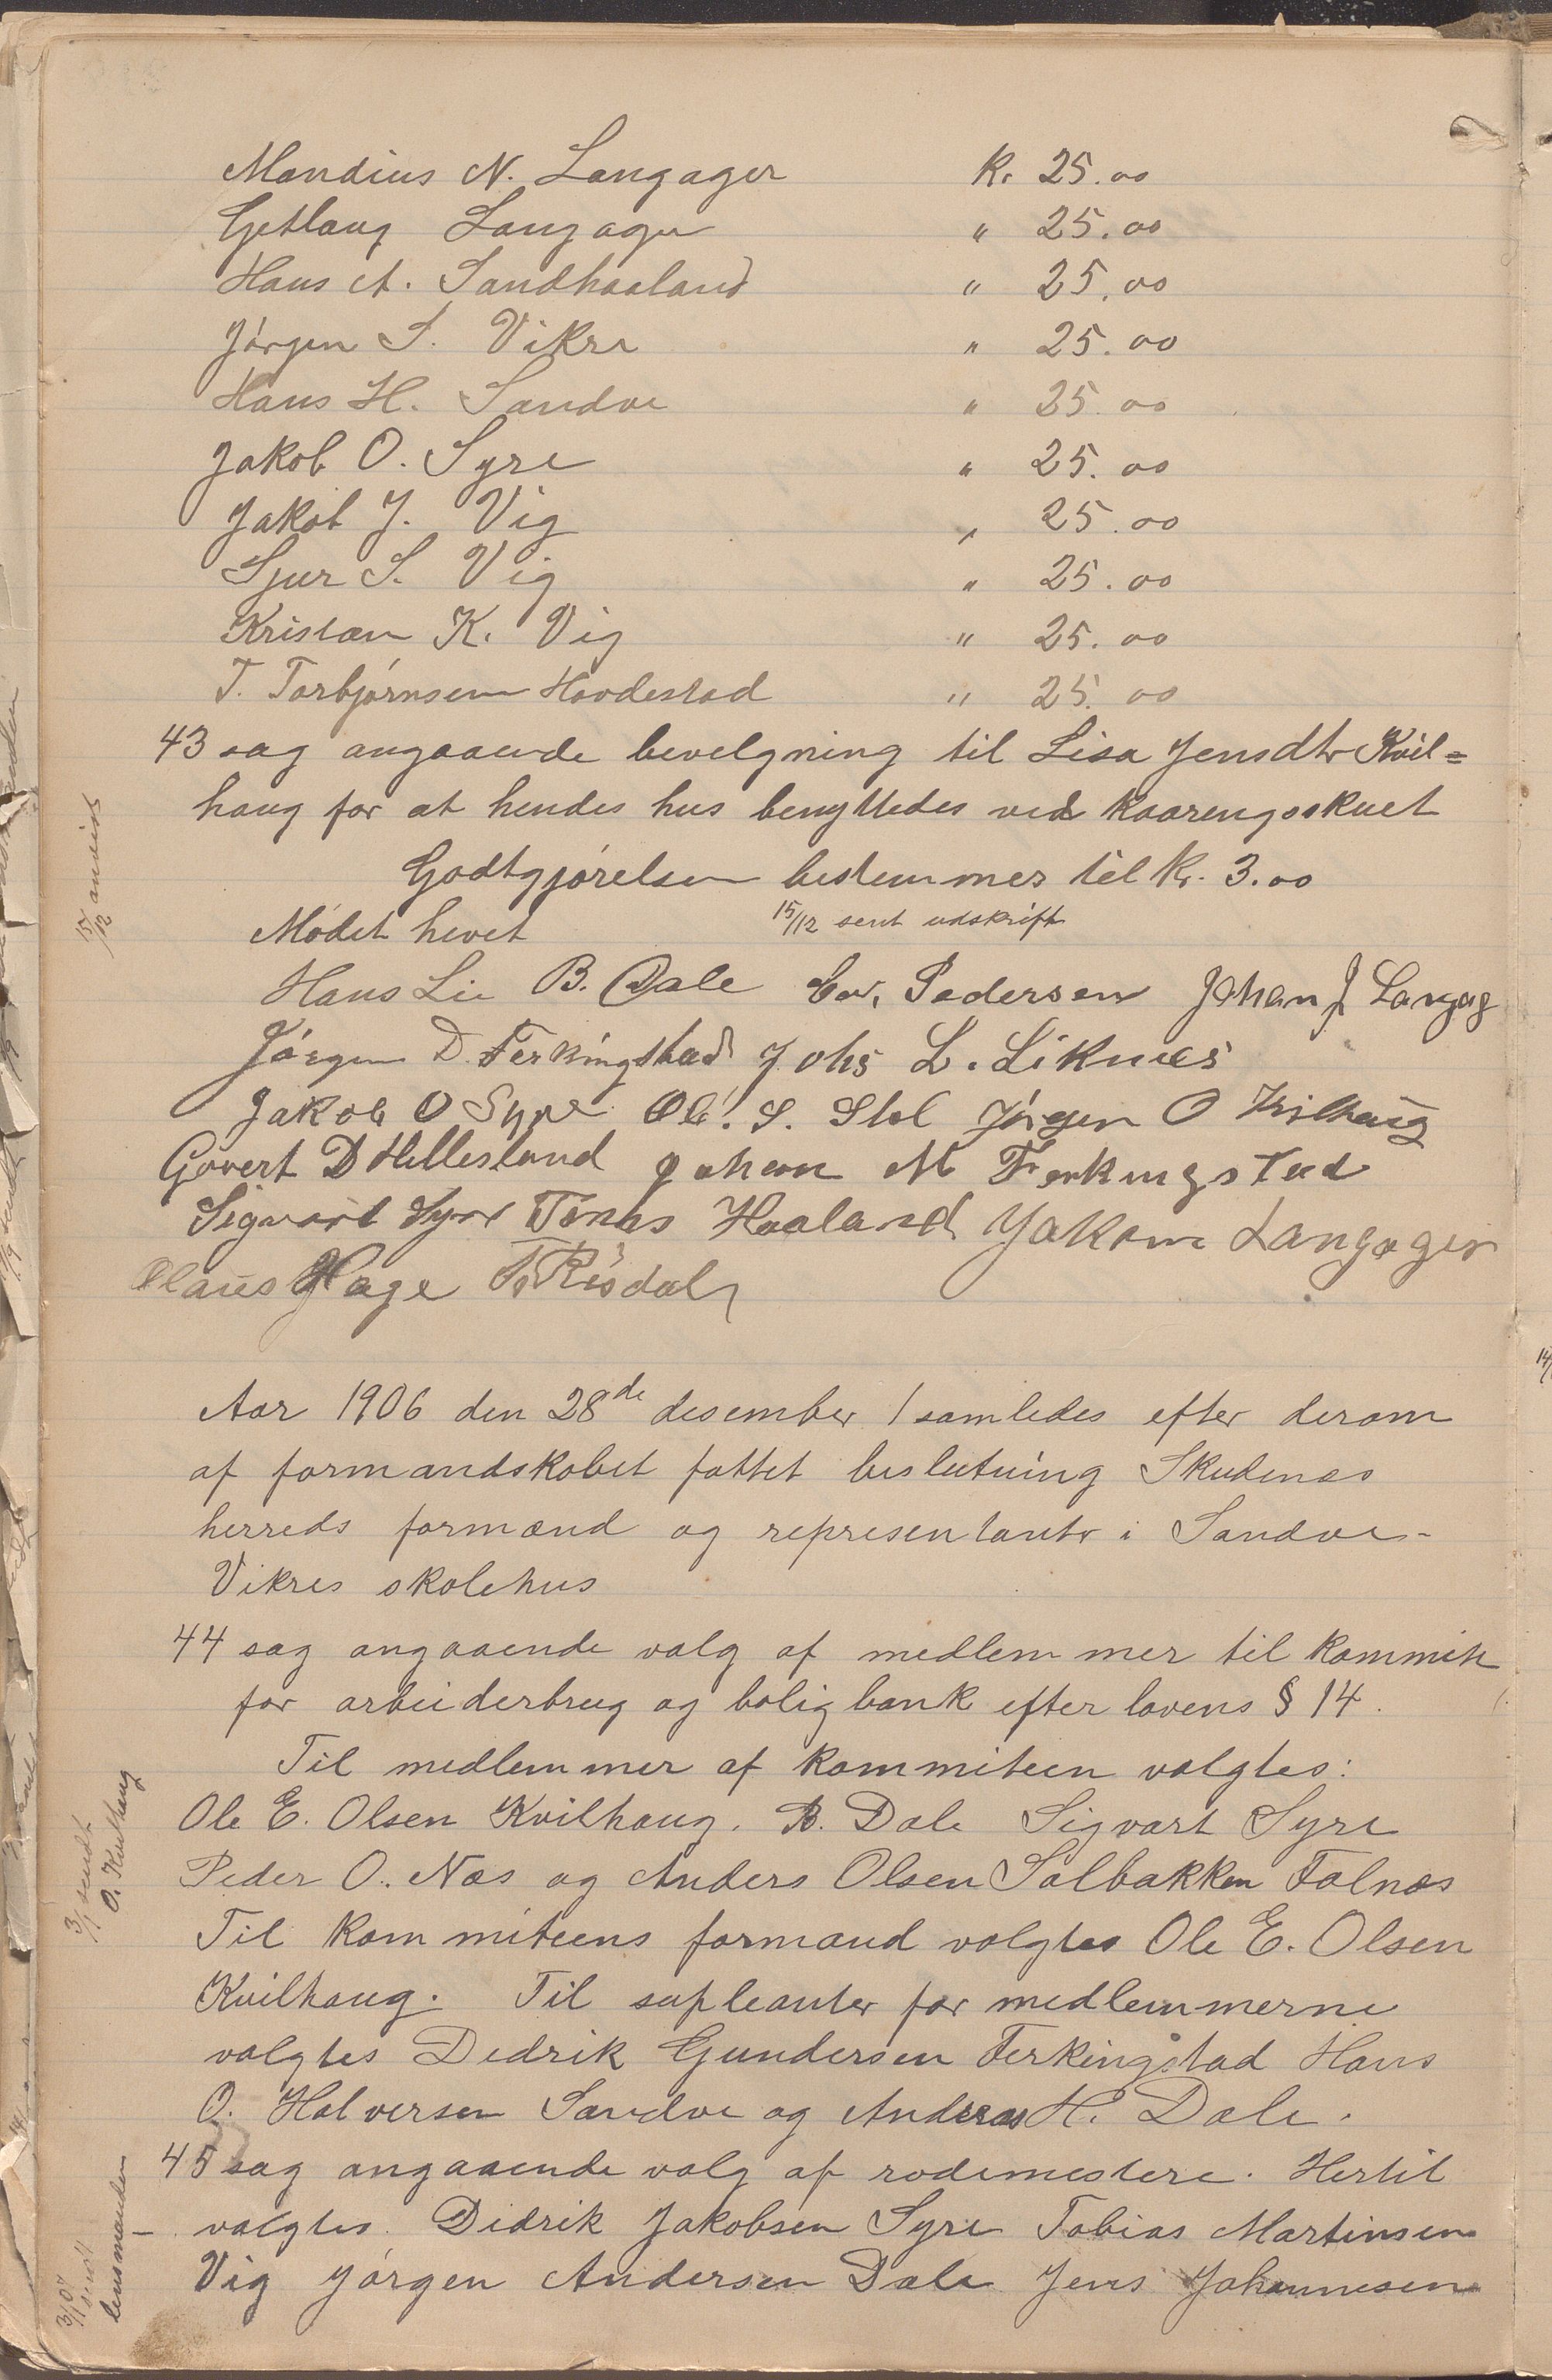 Mandius N. Langager Kr. 25.00
Getlaug Langager " 25.00
Hans A. Sandhaaland " 25.00
Jørgen S. Vikre " 25.00
Hans H. Sandve " 25.00
Jakob O. Syre " 25.00
Jakob J. Vig " 25.00
Sjur S. Vig " 25.00
Kristian K. Vig " 25.00
T. Torbjørnsen Hovdestad " 25.00
43 sag angaaende bevelgning til Lisa Jensdtr Kvil=
haug for at hendes hus benyttedes ved kaaringsskuet
Godtgjørelsen bestemmes til Kr. 3.00
15/12 anvist
Mødet hevet 15/12 sent udskrift
Hans Lie B. Dale Edv. Pedersen Johan J Langag
Jørgen D. Ferkingstad Johs L. Liknes
Jakob O Syre Ole S. Stol Jørgen O Kvilhaug
Govert D Hillesland Johan M Ferkingstad
Sigvart Syre Tønnes Haaland Jakom Langager
Olaus Hage T. Risdal
Aar 1906 den 28de desember samledes efter derom
af formandskabet fattet beslutning Skudenes
herreds formænd og representanter i Sandve-
Vikres skolehus
44 sag angaaende valg af medlemmer til kommite
for arbeiderbrug og boligbank efter lovens § 14.
Til medlemmer af kommiteen valgtes:
Ole E. Olsen Kvilhaug. B. Dale Sigvart Syre
Peder O. Næs og Anders Olsen Solbakken Falnæs
3/1 sendt
O. Kvilhaug
Til kommiteens formand valgtes Ole E. Olsen
Kvilhaug. Til supleanter for medlemmerne
valgtes Dedrik Gundersen Ferkingstad Hans
O. Halversen Sandve og Andreas H. Dale.
45 sag angaaende valg af rodemestere. Hertil
valgtes Didrik Jakobsen Syre Tobias Martinsen
Vig Jørgen Andersen Dale Jens Johannesen
3/1 07
sendt
lensmanden